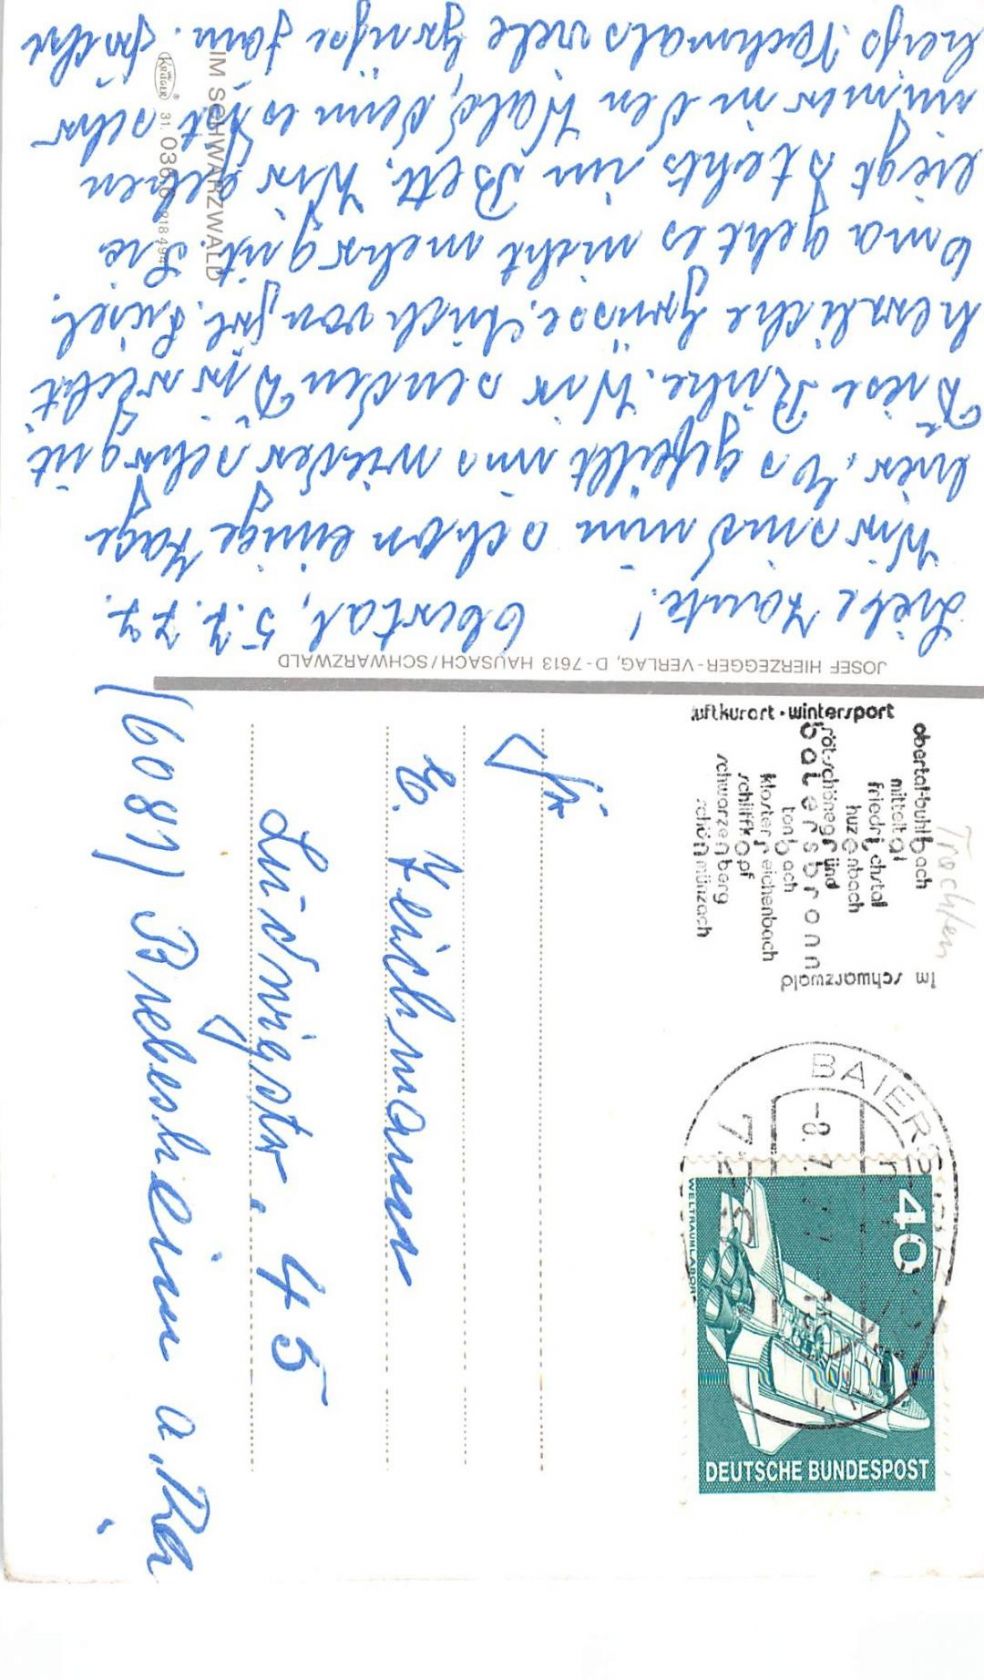 Liebe Tante! Obertal, 5.7.77.
Wir sind nun schon einige Tage
hier. Es gefällt uns wieder sehr gut
Diese Ruhe. Wir senden Dir recht
herzliche Grüsse. Auch von Frl. Liesel.
Oma geht es nicht mehr gut. Sie
liegt stehts im Bett. Wir gehen
immer in den Wald, denn es ist sehr
heiß. Nochmals viele Grüsse Fam.
IM SCHWARZWALD
KRÜGER
31.
JOSEF HIERZEGGER-VERLAG, D-7613 HAUSACH/SCHWARZWALD
Fr.
E. Zeichmann
Ludwigstr. 45
(6081) Biebesheim a. Rh.
Trachten
Im schwarzwald
obertal-buhlbach
mitteltal
friedrichstal
huzenbach
röt-schönegründ
baiersbronn
tonbach
klosterreichenbach
schliffkopf
schwarzenberg
schönmünzach
luftkurort · wintersport
BAIERSBRONN
-8.7.77
40
WELTRAUMLABOR
DEUTSCHE BUNDESPOST